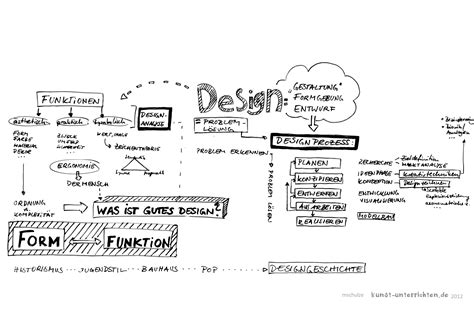 FUNKTIONEN
ästhetisch
praktische
symbolisch
FORM
FARBE
MATERIAL
DEKOR
ZWECK
UMFELD
KOMFORT
ZEICHENTHEORIE
DESIGN-
ANALYSE
ERGONOMIE
DER MENSCH
ORDNUNG
KOMPLEXITÄT
WAS IST GUTES DESIGN?
FORM
FUNKTION
HISTORISMUS
JUGENDSTIL
BAUHAUS
POP
DESIGNGESCHICHTE
Design
= PROBLEM-
LÖSUNG
GESTALTUNG
FORMGEBUNG
ENTWURF
DESIGNPROZESS:
PROBLEM ERKENNEN
PROBLEM LÖSEN
PLANEN
KONZIPIEREN
ENTWERFEN
AUSARBEITEN
REALISIEREN
RECHERCHE
MARKTANALYSE
IDEENPHASE
KONZEPTION
Kreativtechniken
ENTWICKLUNG
VISUALISIERUNG
MODELLBAU
mschulze
kunst-unterrichten.de 2012